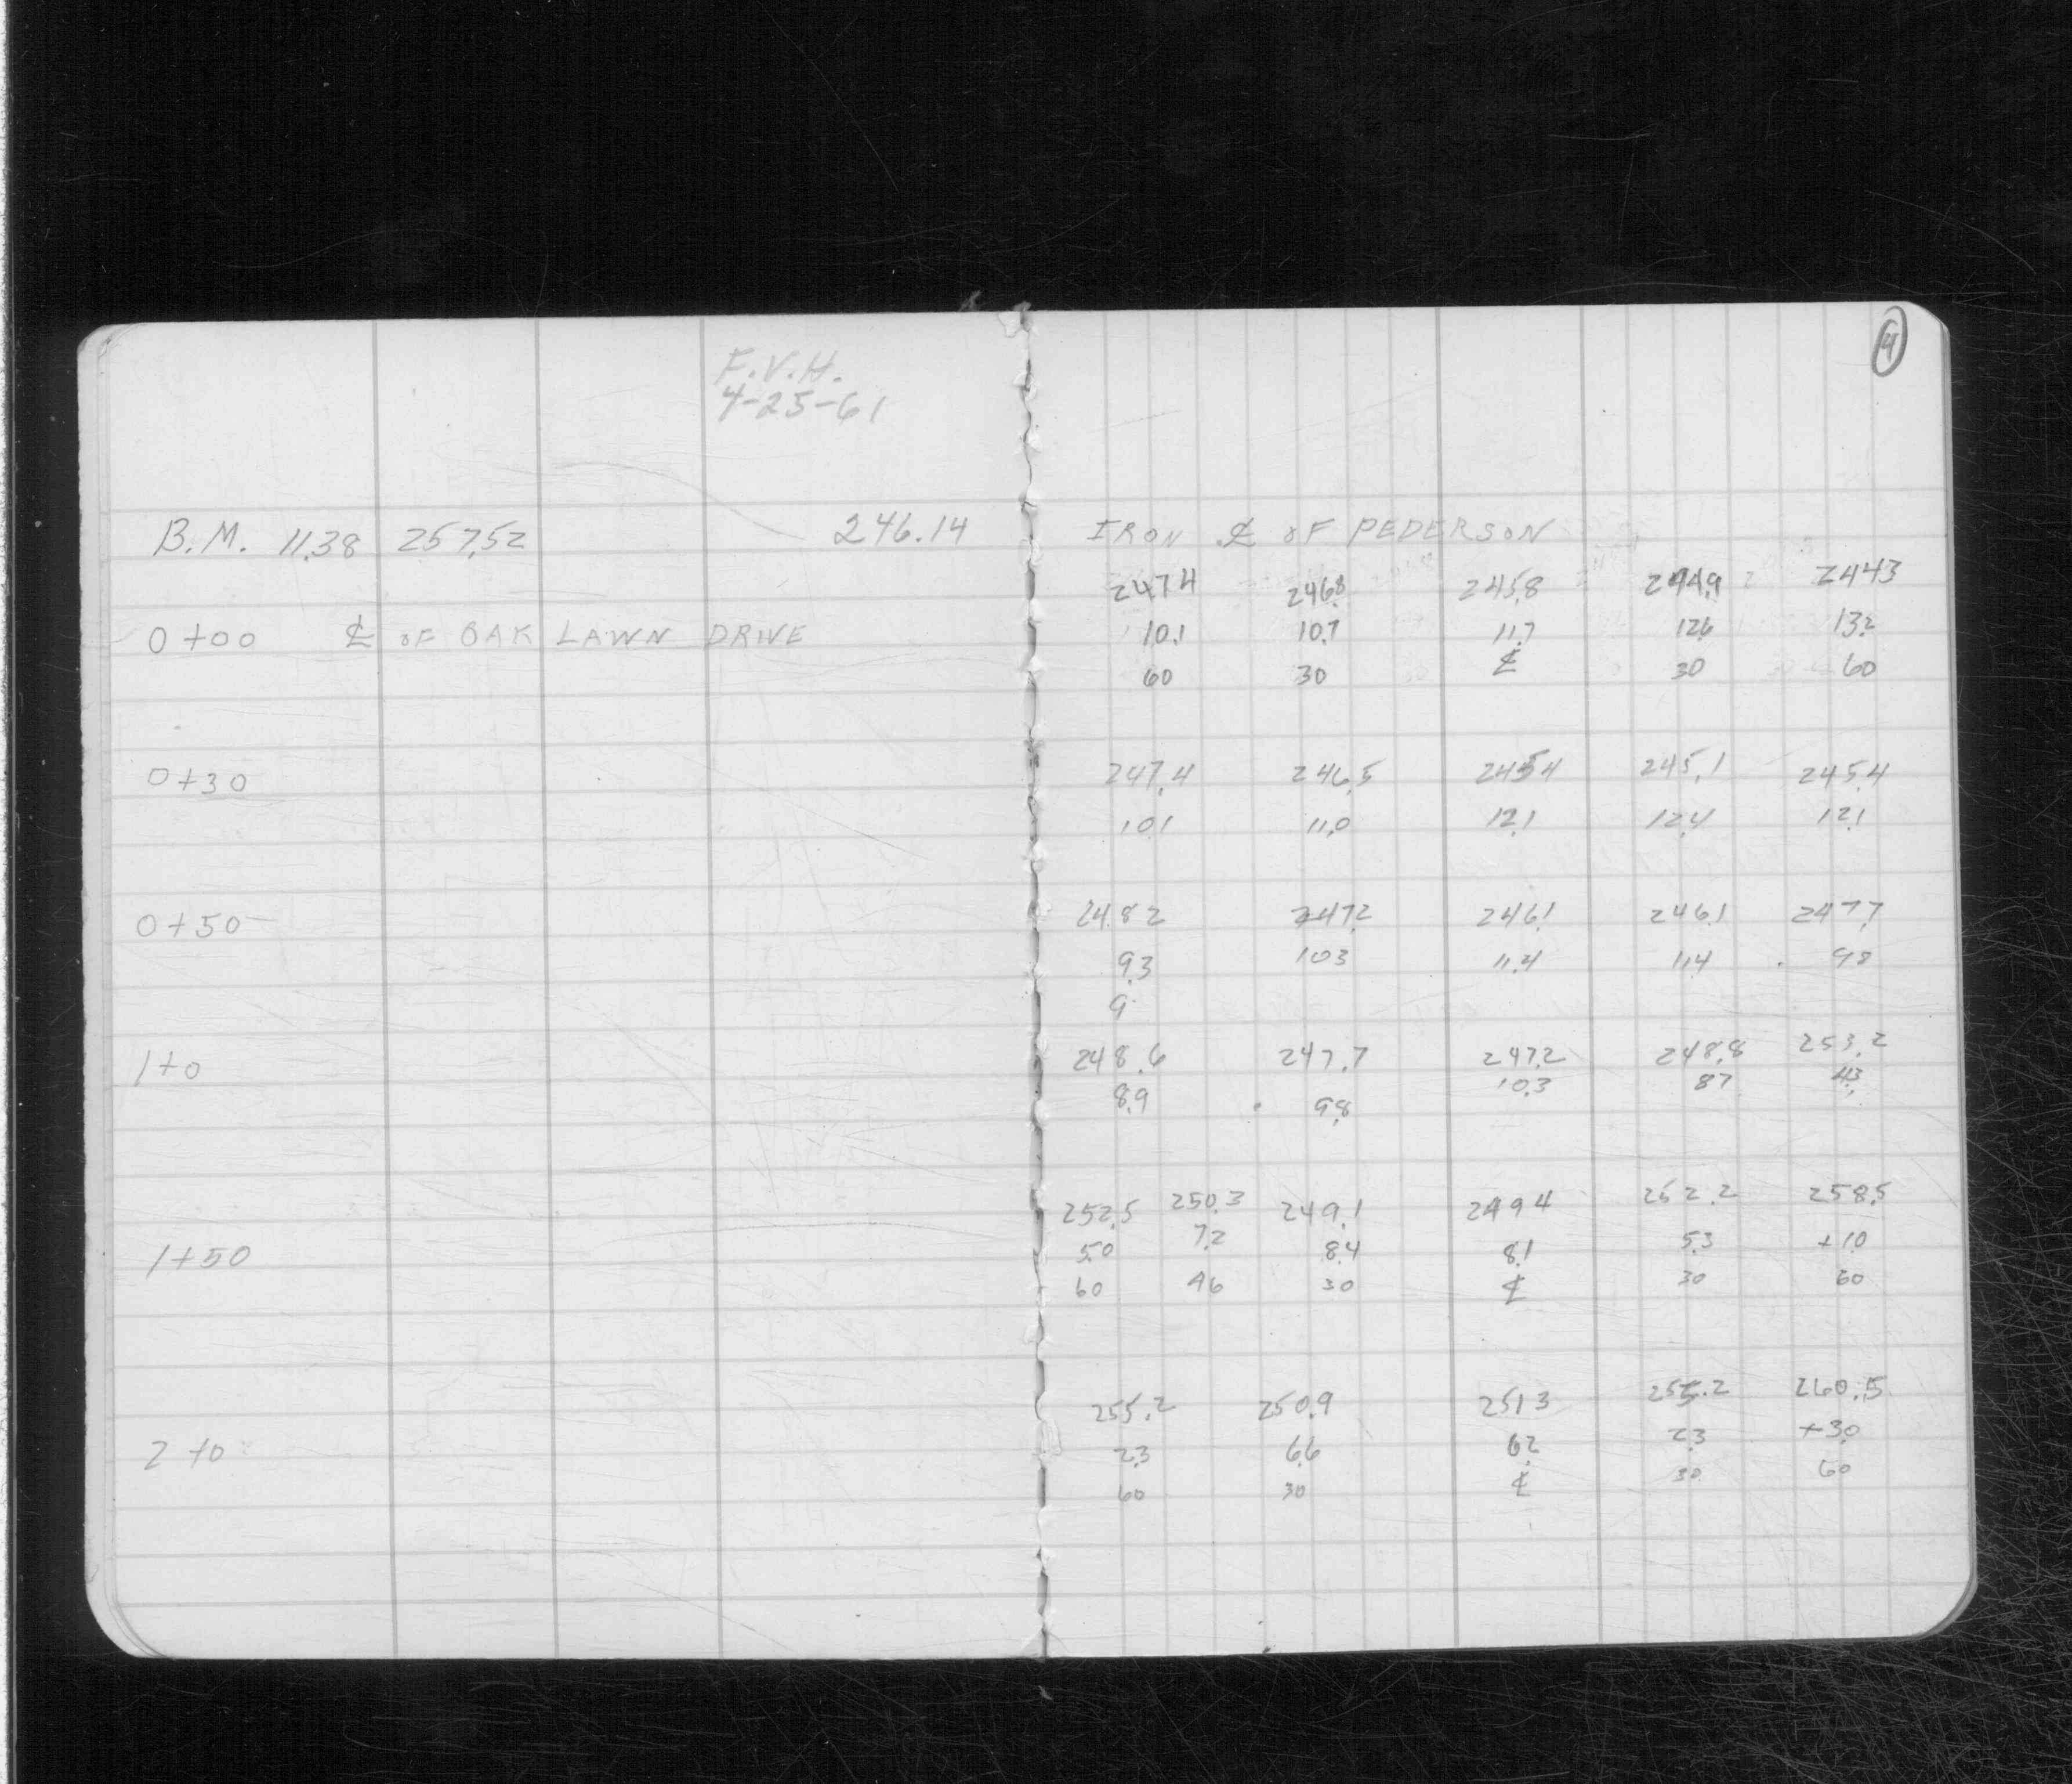 F.V.H.
4-25-61
4
B.M. 11.38 257.52 246.14 IRON ℄ OF PEDERSON
247.4 246.8 245.8 244.9 244.3
0+00 ℄ OF OAK LAWN DRIVE 10.1 10.7 11.7 12.6 13.2
60 30 ℄ 30 60
0+30 247.4 246.5 245.4 245.1 245.4
10.1 11.0 12.1 12.4 12.1
0+50 248.2 247.2 246.1 246.1 247.7
9.3 10.3 11.4 11.4 9.8
9
1+0 248.6 247.7 247.2 248.8 253.2
8.9 9.8 10.3 8.7 4.3
252.5 250.3 249.1 249.4 252.2 258.5
1+50 5.0 7.2 8.4 8.1 5.3 +1.0
60 46 30 ℄ 30 60
255.2 250.9 251.3 255.2 260.5
2+0 2.3 6.6 6.2 2.3 +3.0
60 30 ℄ 30 60